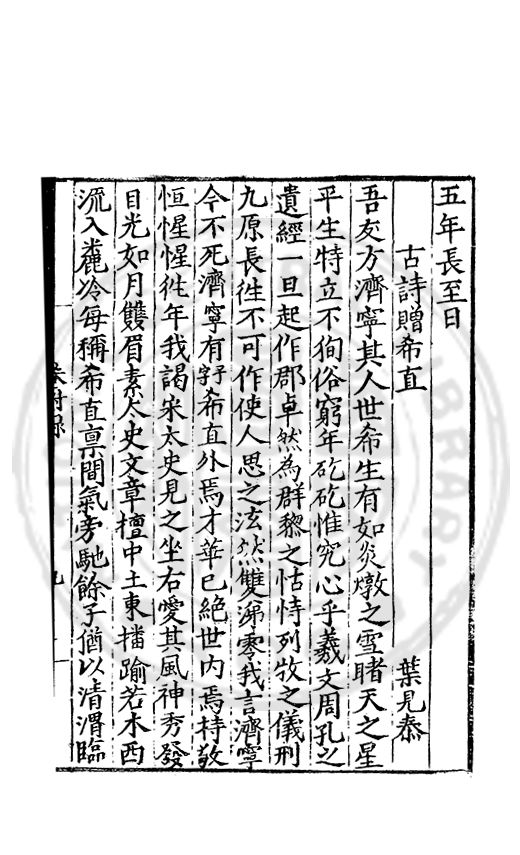 五年長至日
古詩贈希直
葉見泰
吾友方濟寧其人世希生有如炎燉之雪睹天之星
平生特立不狥俗窮年矻矻惟究心乎羲文周孔之
遺經一旦起作郡卓然為群黎之怙恃列牧之儀刑
九原長徃不可作使人思之泫然雙涕零我言濟寧
今不死濟寧有子字希直外焉才華已絕世内焉持敬
恒惺惺徃年我謁宋太史見之坐右愛其風神秀發
目光如月雙眉素太史文章擅中土東播踰若木西
流入麄冷每稱希直禀間氣旁馳餘子猶以清渭臨